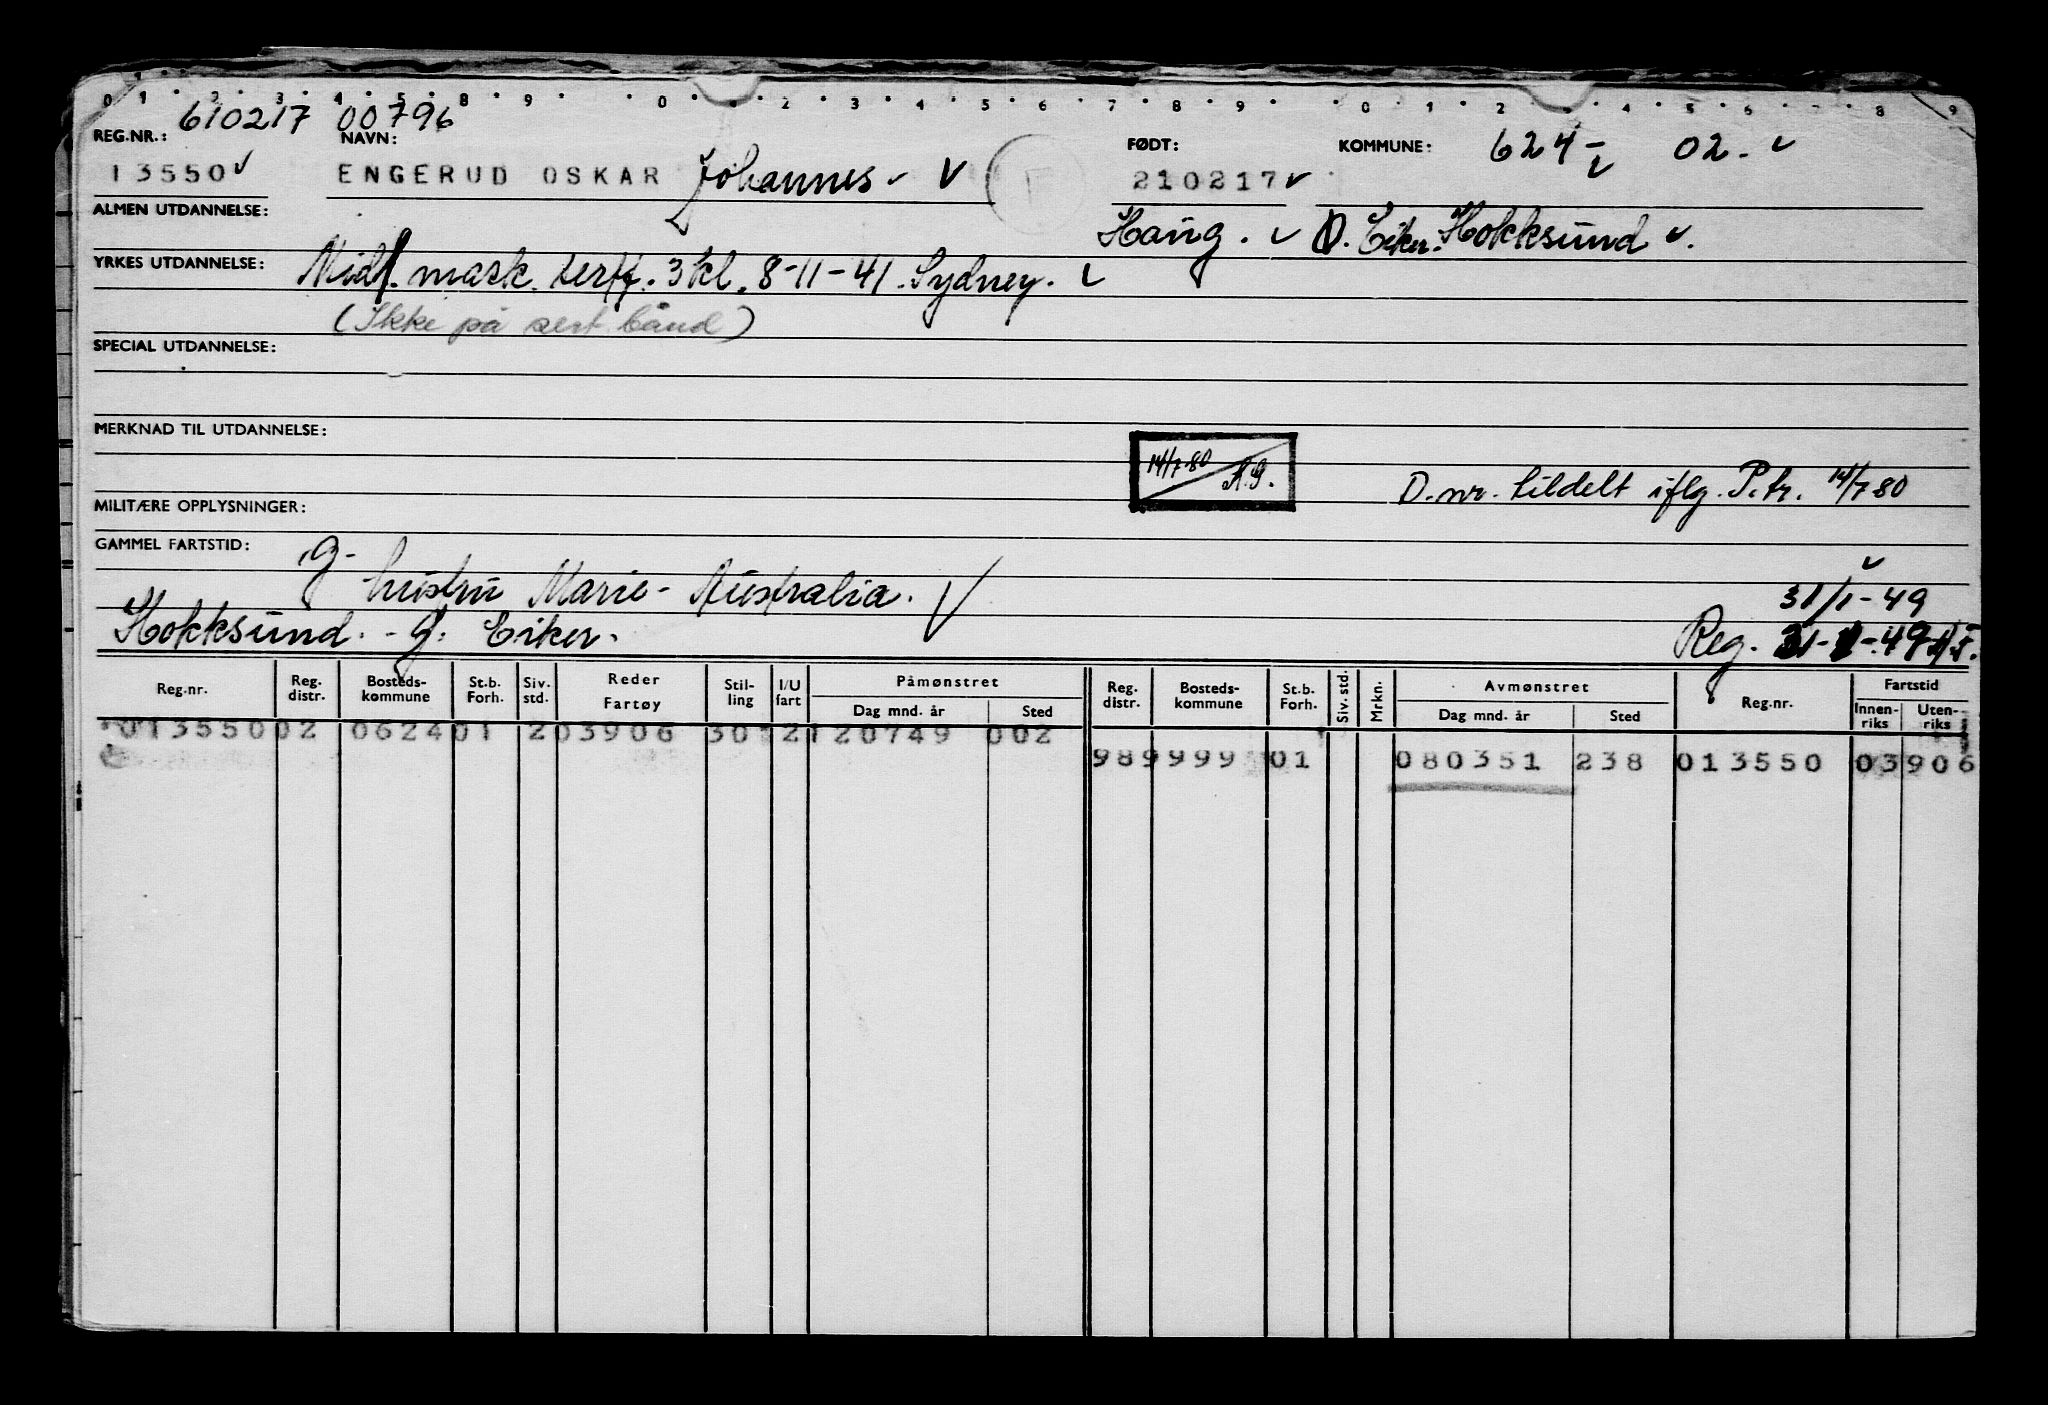 0 1 2 3 4 5 8 9 0 2 3 4 5 6 7 8 9 0 1 2 4 5 6 8 9
610217 00796
REG.NR.: NAVN: FØDT: KOMMUNE: 624- 02.
13550 ENGERUD OSKAR Johannes 210217
ALMEN UTDANNELSE: Ø. Eiker. Hokksund
YRKES UTDANNELSE: Midl. mask. sertf. 3 kl. 8-11-41. Sydney.
(Ikke på sert. bånd)
SPECIAL UTDANNELSE:
MERKNAD TIL UTDANNELSE:
14/7-80 A.G.
D.nr. tildelt iflg. P.tr. 14/7 80
MILITÆRE OPPLYSNINGER:
GAMMEL FARTSTID: g-
hustru Marie - Australia. 31/1-49
Hokksund. - Ø. Eiker. Reg.
Reg.nr. Reg. distr. Bosteds-kommune St.b. Forh. Siv. std. Reder Fartøy Stil-ling I/U fart Påmønstret Dag mnd. år Sted Reg. distr. Bosteds-kommune St.b. Forh. Siv. std. Mrkn. Avmønstret Dag mnd. år Sted Reg.nr. Fartstid Innen-riks Uten-riks
013550 02 0624 01 2 03906 301 2 120749 002
989 999 01 080351 238 013550 03906